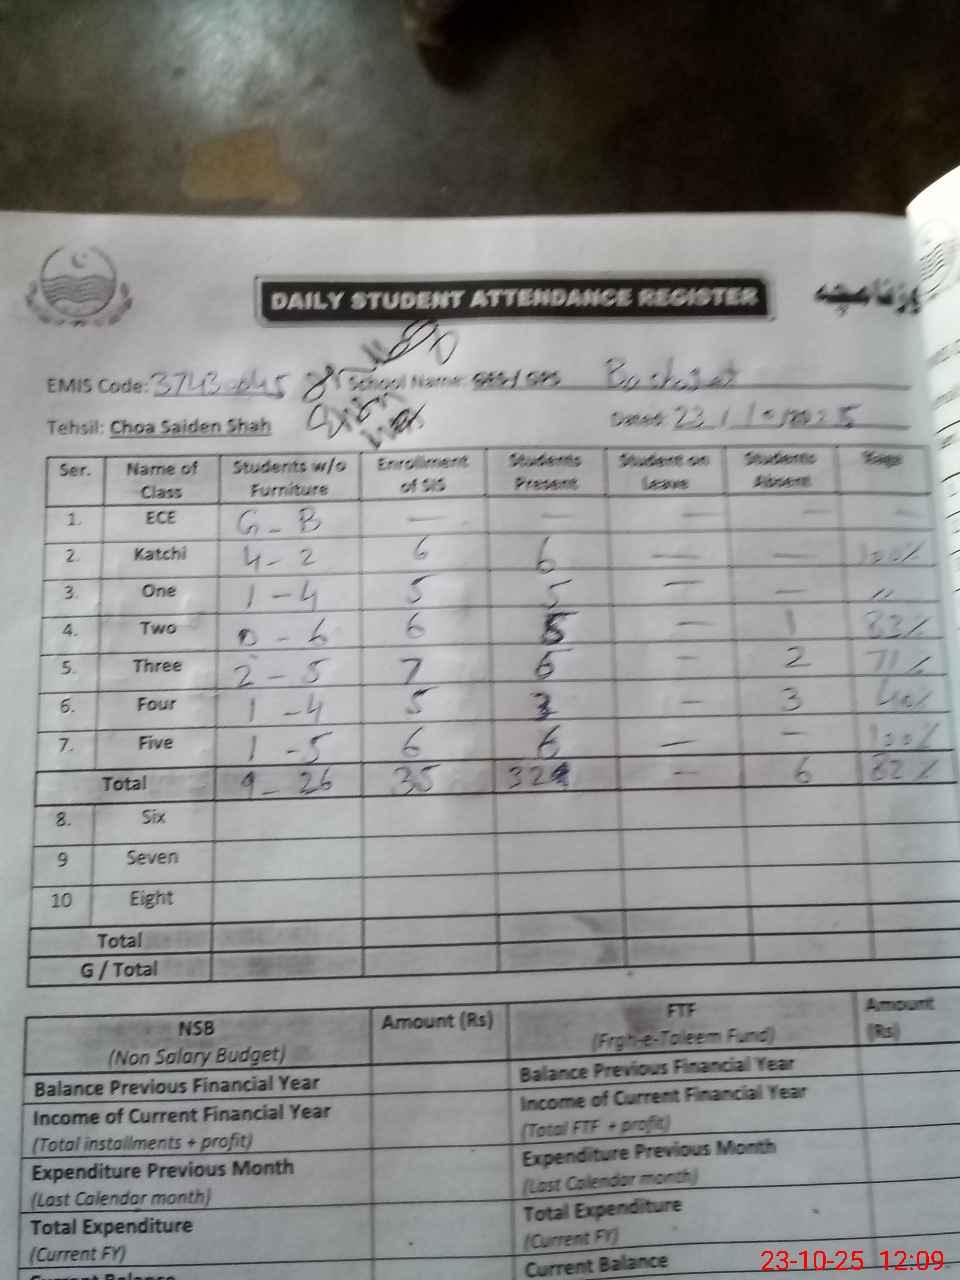 DAILY STUDENT ATTENDANCE REGISTER
EMIS Code: School Name: GES/GPS Basharat
Tehsil: Choa Saiden Shah Dated: 23/10/2025
Ser. Name of Class Students w/o Furniture Enrollment of SIS Students Present Student on Leave Students Absent %age
1. ECE G - B — — — — —
2. Katchi 4 - 2 6 6 — — 100%
3. One 1 - 4 5 5 — — "
4. Two 0 - 6 6 5 — 1 83%
5. Three 2 - 5 7 — 2 71%
6. Four 1 - 4 5 — 3 40%
7. Five 1 - 5 6 6 — — 100%
Total 9 - 26 35 — 6 82%
8. Six
9 Seven
10 Eight
Total
G / Total
NSB (Non Salary Budget) Amount (Rs) FTF (Frgh-e-Taleem Fund) Amount (Rs)
Balance Previous Financial Year Balance Previous Financial Year
Income of Current Financial Year Income of Current Financial Year
(Total installments + profit) (Total FTF + profit)
Expenditure Previous Month Expenditure Previous Month
(Last Calendar month) (Last Calendar month)
Total Expenditure Total Expenditure
(Current FY) (Current FY)
Current Balance Current Balance
23-10-25 12:09